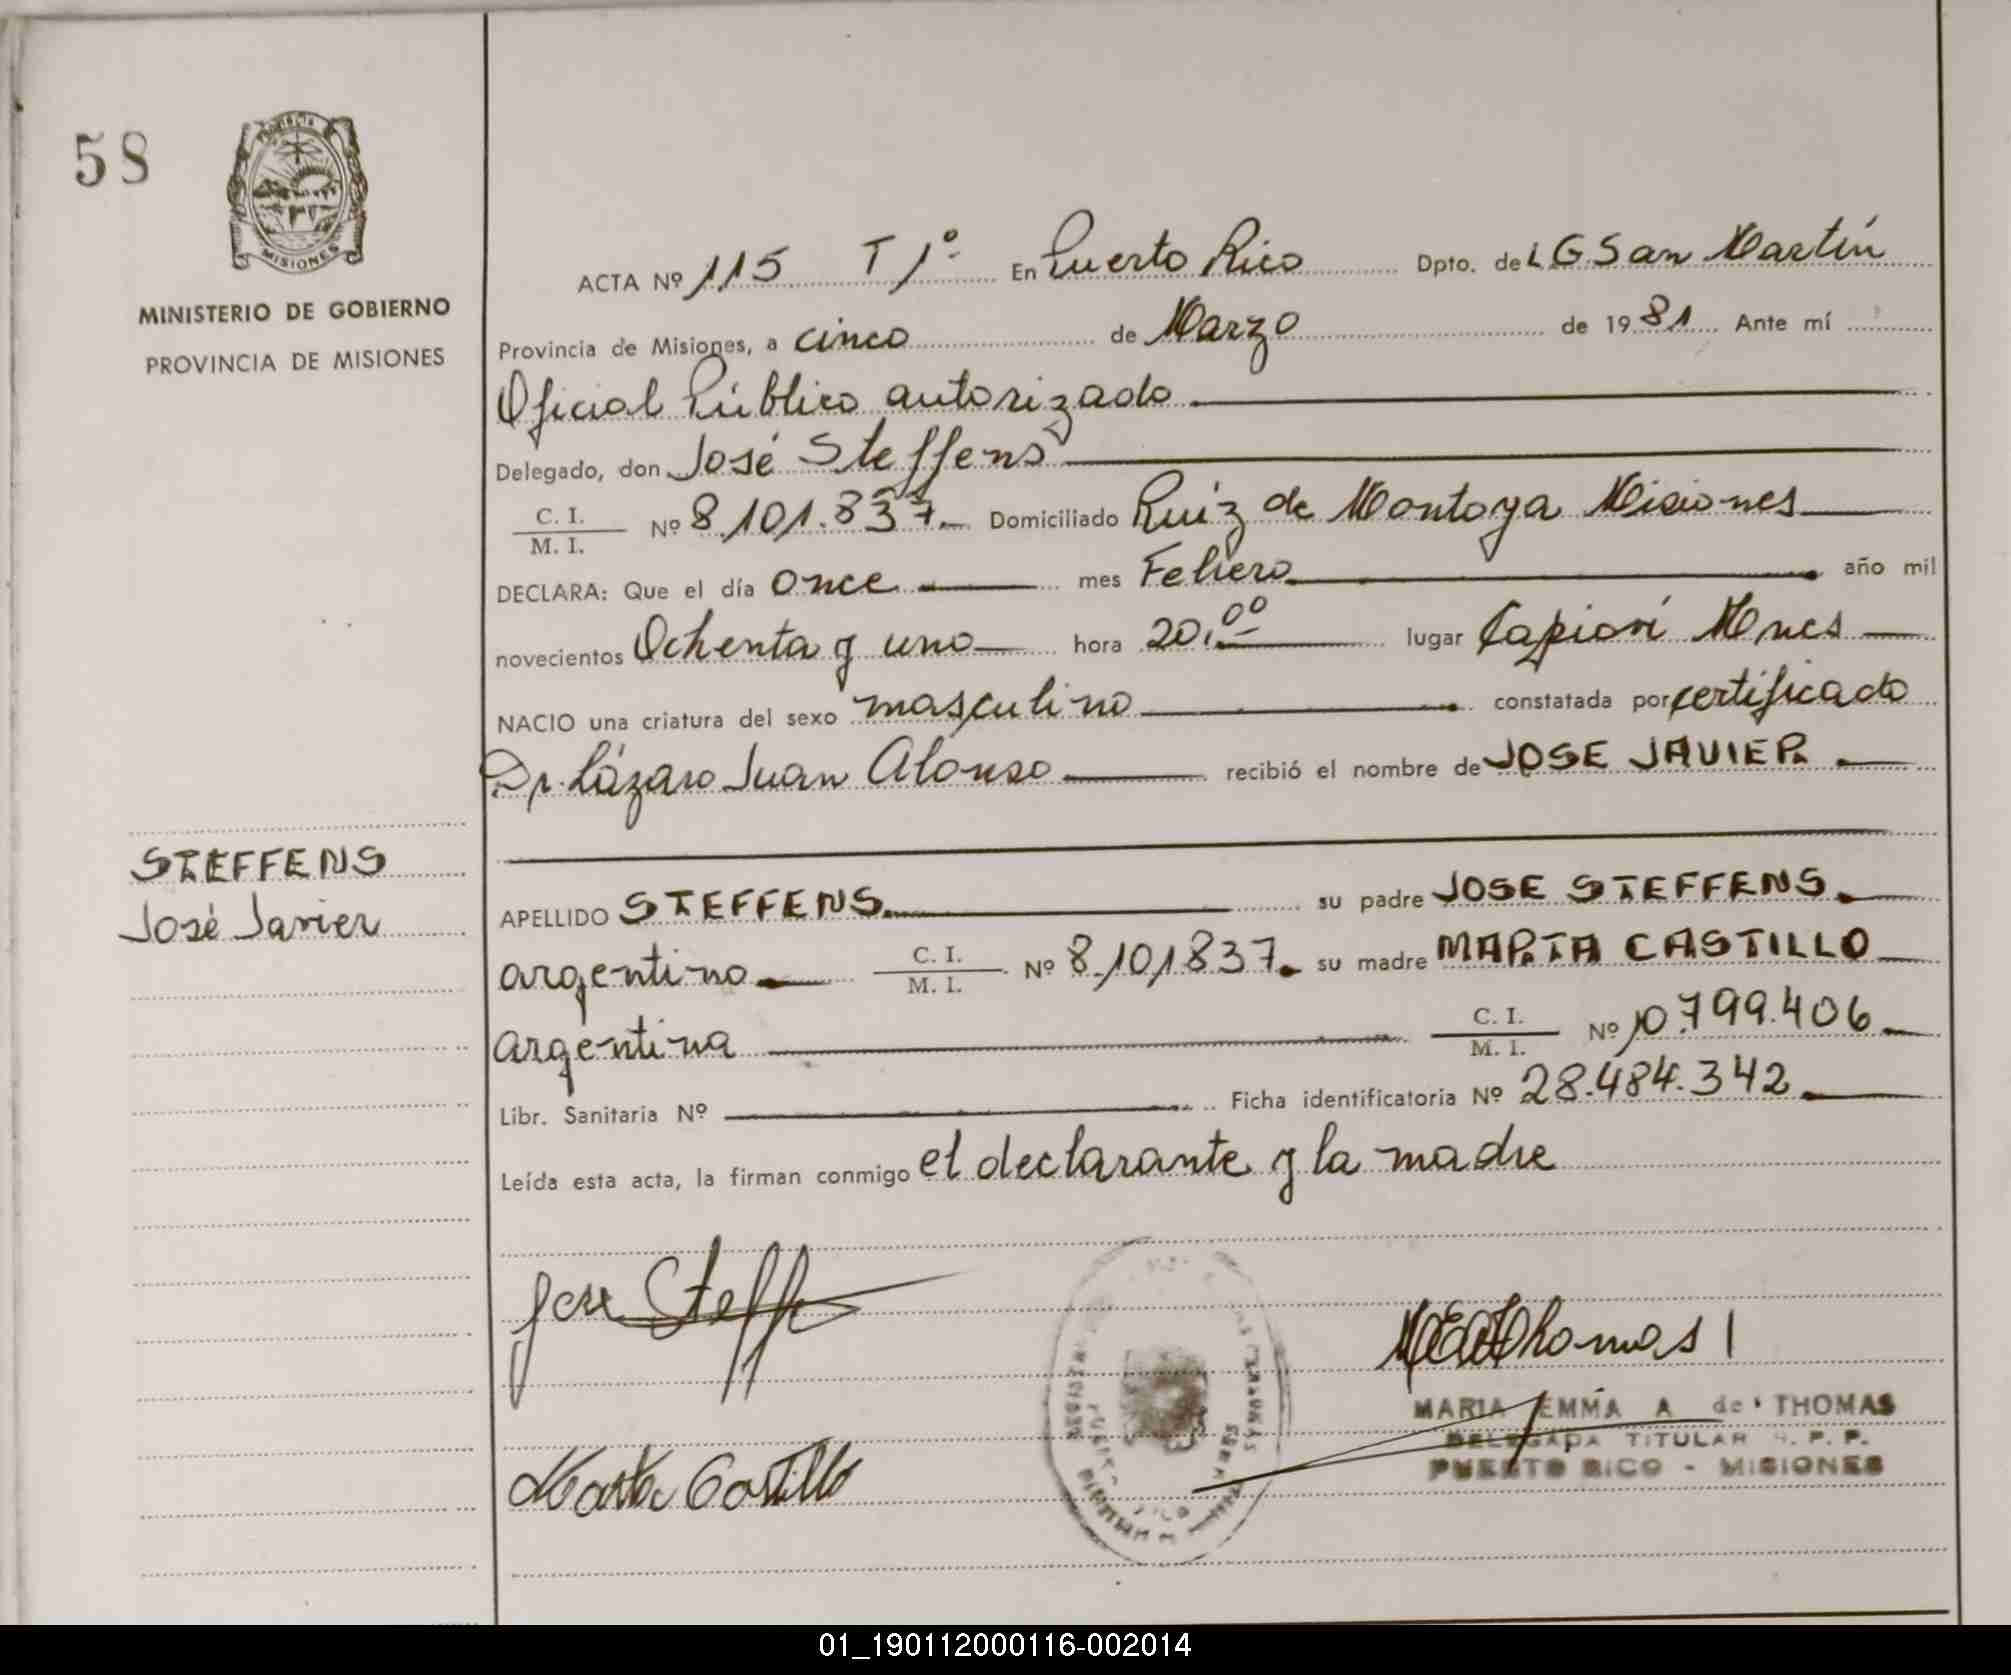 58
PROVINCIA
MISIONES
MINISTERIO DE GOBIERNO
PROVINCIA DE MISIONES
ACTA Nº 115 T 1º- En Puerto Rico Dpto. de L G San Martín
Provincia de Misiones, a cinco de Marzo de 1981 Ante mí
Oficial Público autorizado
Delegado, don José Steffens
C. I.
M. I. Nº 8.101.837.- Domiciliado Ruíz de Montoya Misiones
DECLARA: Que el día once mes Febrero año mil
novecientos Ochenta y uno hora 20.00 lugar Capioví Mnes
NACIO una criatura del sexo masculino constatada por certificado
Dr. Lázaro Juan Alonso recibió el nombre de JOSE JAVIER.
STEFFENS
José Javier
APELLIDO STEFFENS su padre JOSE STEFFENS.
argentino. C. I.
M. I. Nº 8.101.837. su madre MARTA CASTILLO
argentina C. I.
M. I. Nº 10.799.406
Libr. Sanitaria Nº Ficha identificatoria Nº 28.484.342
Leída esta acta, la firman conmigo el declarante y la madre
Jose Steff
Marta Castillo
Thomas
MARIA EMMA A de THOMAS
DELEGADA TITULAR R. P. P.
PUERTO RICO - MISIONES
01_190112000116-002014